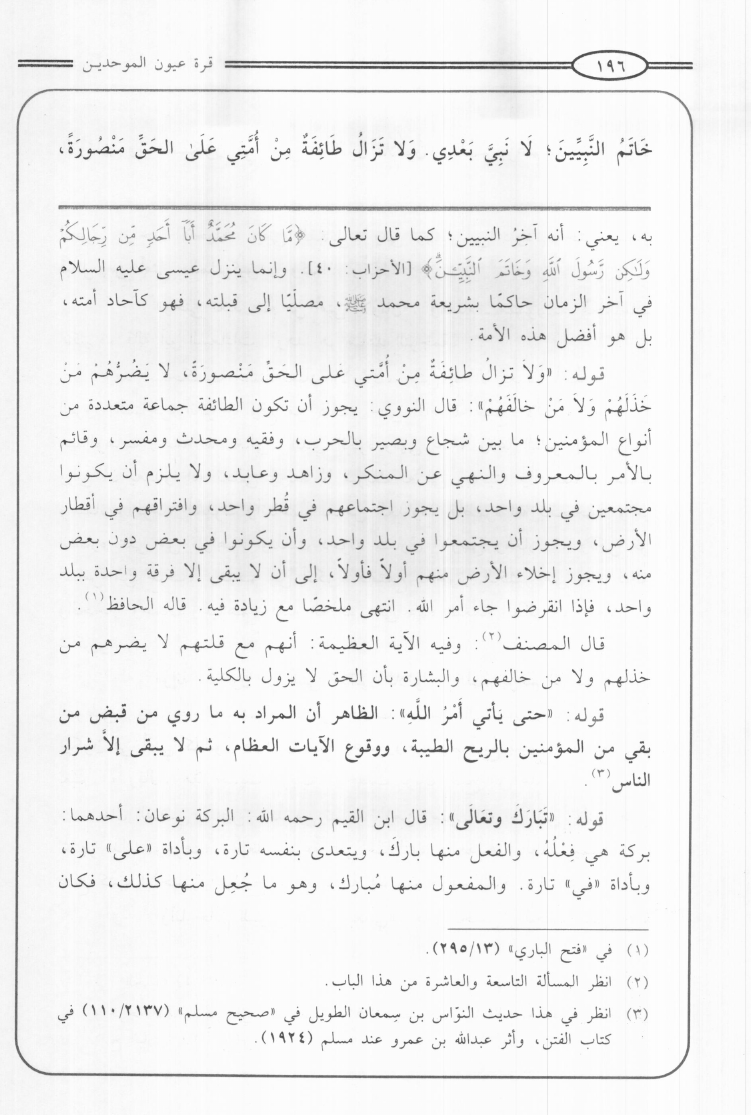 ١٩٦
قرة عيون الموحدين
خَاتَمُ النَّبِيِّينَ؛ لَا نَبِيَّ بَعْدِي. وَلا تَزَالُ طَائِفَةٌ مِنْ أُمَّتِي عَلَىٰ الحَقِّ مَنْصُورَةً،
به، يعني: أنه آخِرُ النبيين؛ كما قال تعالى: ﴿مَّا كَانَ مُحَمَّدٌ أَبَآ أَحَدٍ مِّن رِّجَالِكُمْ
وَلَٰكِن رَّسُولَ ٱللَّهِ وَخَاتَمَ ٱلنَّبِيِّـۧنَۗ﴾ [الأحزاب: ٤٠]. وإنما ينزل عيسى عليه السلام
في آخر الزمان حاكمًا بشريعة محمد ﷺ، مصلّيًا إلى قبلته، فهو كآحاد أمته،
بل هو أفضل هذه الأمة.
قوله: «وَلاَ تزالُ طائِفَةٌ مِنْ أُمَّتي عَلى الحَقِّ مَنْصورَةً، لا يَضُرُّهُمْ مَنْ
خَذَلَهُمْ وَلاَ مَنْ خالَفَهُمْ»: قال النووي: يجوز أن تكون الطائفة جماعة متعددة من
أنواع المؤمنين؛ ما بين شجاع وبصير بالحرب، وفقيه ومحدث ومفسر، وقائم
بالأمر بالمعروف والنهي عن المنكر، وزاهد وعابد، ولا يلزم أن يكونوا
مجتمعين في بلد واحد، بل يجوز اجتماعهم في قُطر واحد، وافتراقهم في أقطار
الأرض، ويجوز أن يجتمعوا في بلد واحد، وأن يكونوا في بعض دون بعض
منه، ويجوز إخلاء الأرض منهم أولاً فأولاً، إلى أن لا يبقى إلا فرقة واحدة ببلد
واحد، فإذا انقرضوا جاء أمر الله. انتهى ملخصًا مع زيادة فيه. قاله الحافظ(١).
قال المصنف(٢): وفيه الآية العظيمة: أنهم مع قلتهم لا يضرهم من
خذلهم ولا من خالفهم، والبشارة بأن الحق لا يزول بالكلية.
قوله: «حتى يَأتي أَمْرُ اللَّهِ»: الظاهر أن المراد به ما روي من قبض من
بقي من المؤمنين بالريح الطيبة، ووقوع الآيات العظام، ثم لا يبقى إلاَّ شرار
الناس(٣).
قوله: «تَبَارَكَ وتعَالَى»: قال ابن القيم رحمه الله: البركة نوعان: أحدهما:
بركة هي فِعْلُهُ، والفعل منها باركَ، ويتعدى بنفسه تارة، وبأداة «على» تارة،
وبأداة «في» تارة. والمفعول منها مُبارك، وهو ما جُعِل منها كذلك، فكان
(١) في «فتح الباري» (٢٩٥/١٣).
(٢) انظر المسألة التاسعة والعاشرة من هذا الباب.
(٣) انظر في هذا حديث النوّاس بن سِمعان الطويل في «صحيح مسلم» (١١٠/٢١٣٧) في
كتاب الفتن، وأثر عبدالله بن عمرو عند مسلم (١٩٢٤).